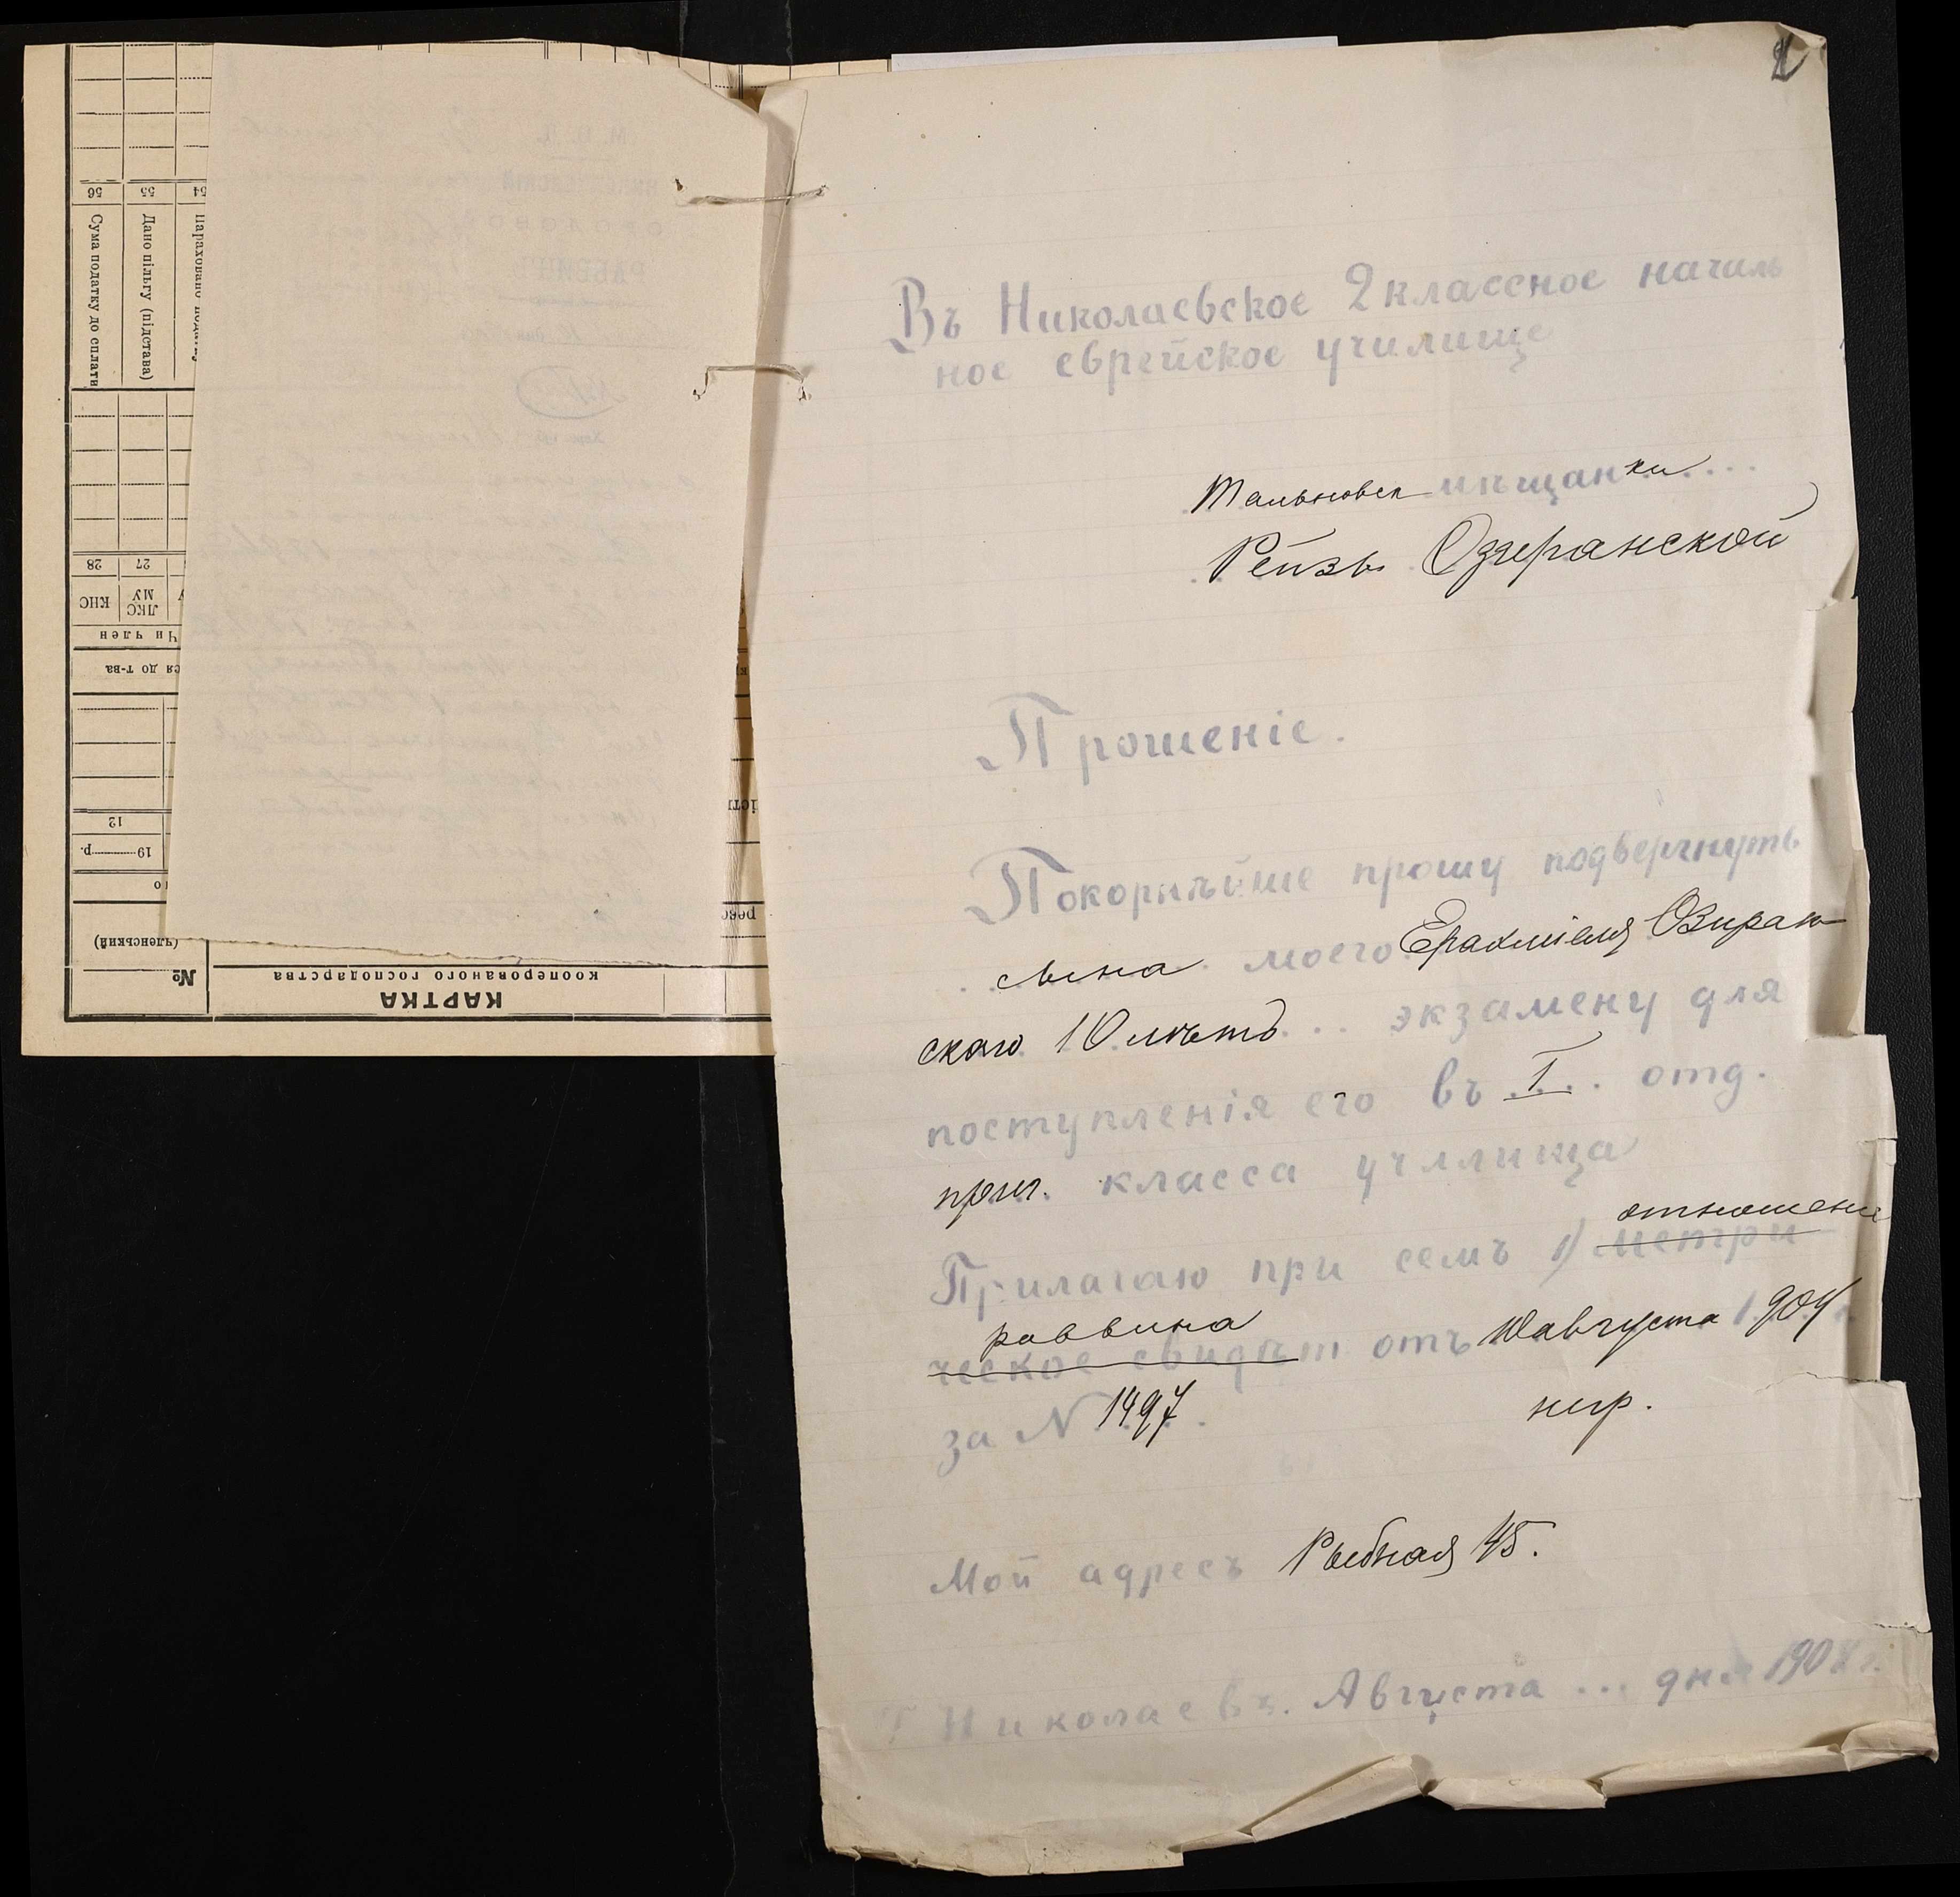 56
55
54
Сума податку до сплати
Дано пільгу (підстава)
28
27
КНС
ЛКС
МУ
Чи член
ся до т-ва
12
19 р.
(членський)
№
кооперованого господарства
КАРТКА
Въ Николаевское 2 классное началь
ное еврейское училище
Тальновск мѣщанки
Рейзы Озеранской
Прошеніе.
Покорнѣйше прошу подвергнуть
сына моего Ерахміеля Озиран
скаго 10 лѣтъ экзамену для
поступленія его въ I отд.
приг. класса училища
отношение
Прилагаю при семъ 1) метри
раввина
ческое свидѣт отъ августа 1904
за N 1497
Мой адресъ Рыбная 45.
Г Николаевъ. Августа ... дня 1904 г.